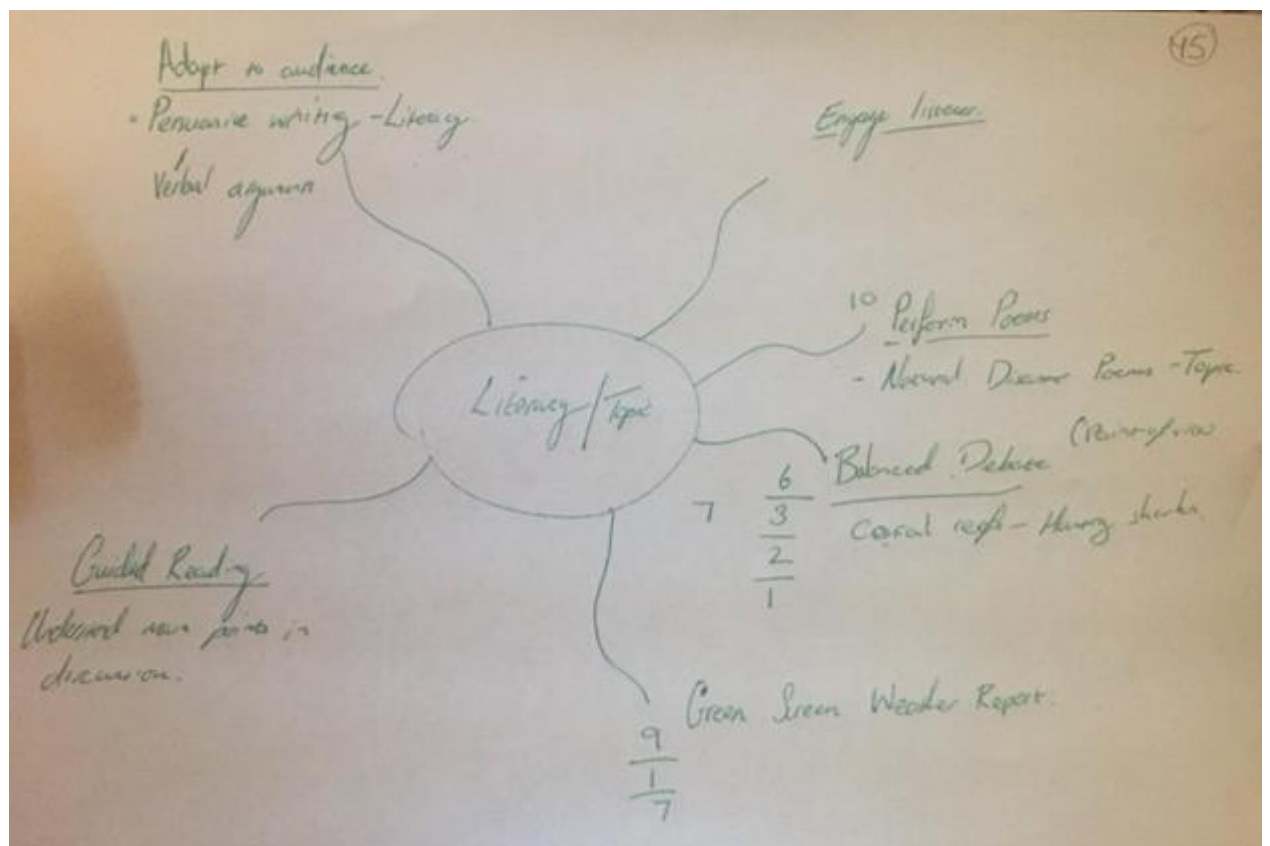 Y5
Adapt to audience.
• Persuasive writing - Literacy
Verbal argument
Engage listener.
10 Perform Poems
- Natural Disaster Poems - Topic
Literacy/Topic
Balanced Debate
Coral reefs - Hunting sharks
7
6
3
2
1
Guided Reading
Understand main points in
discussion.
Green Screen Weather Report.
9
1
7